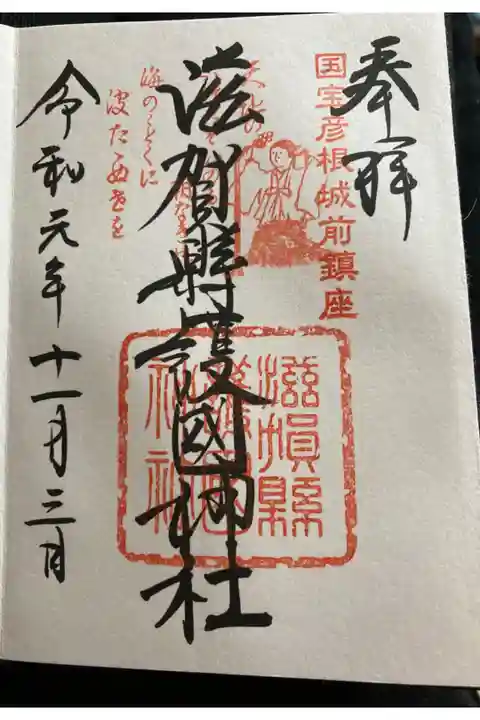 奉拝
国宝彦根城前鎮座
滋賀縣護國神社
滋賀縣
護國
神社
海のことくに
波たゝぬ世を
令和元年十一月三日